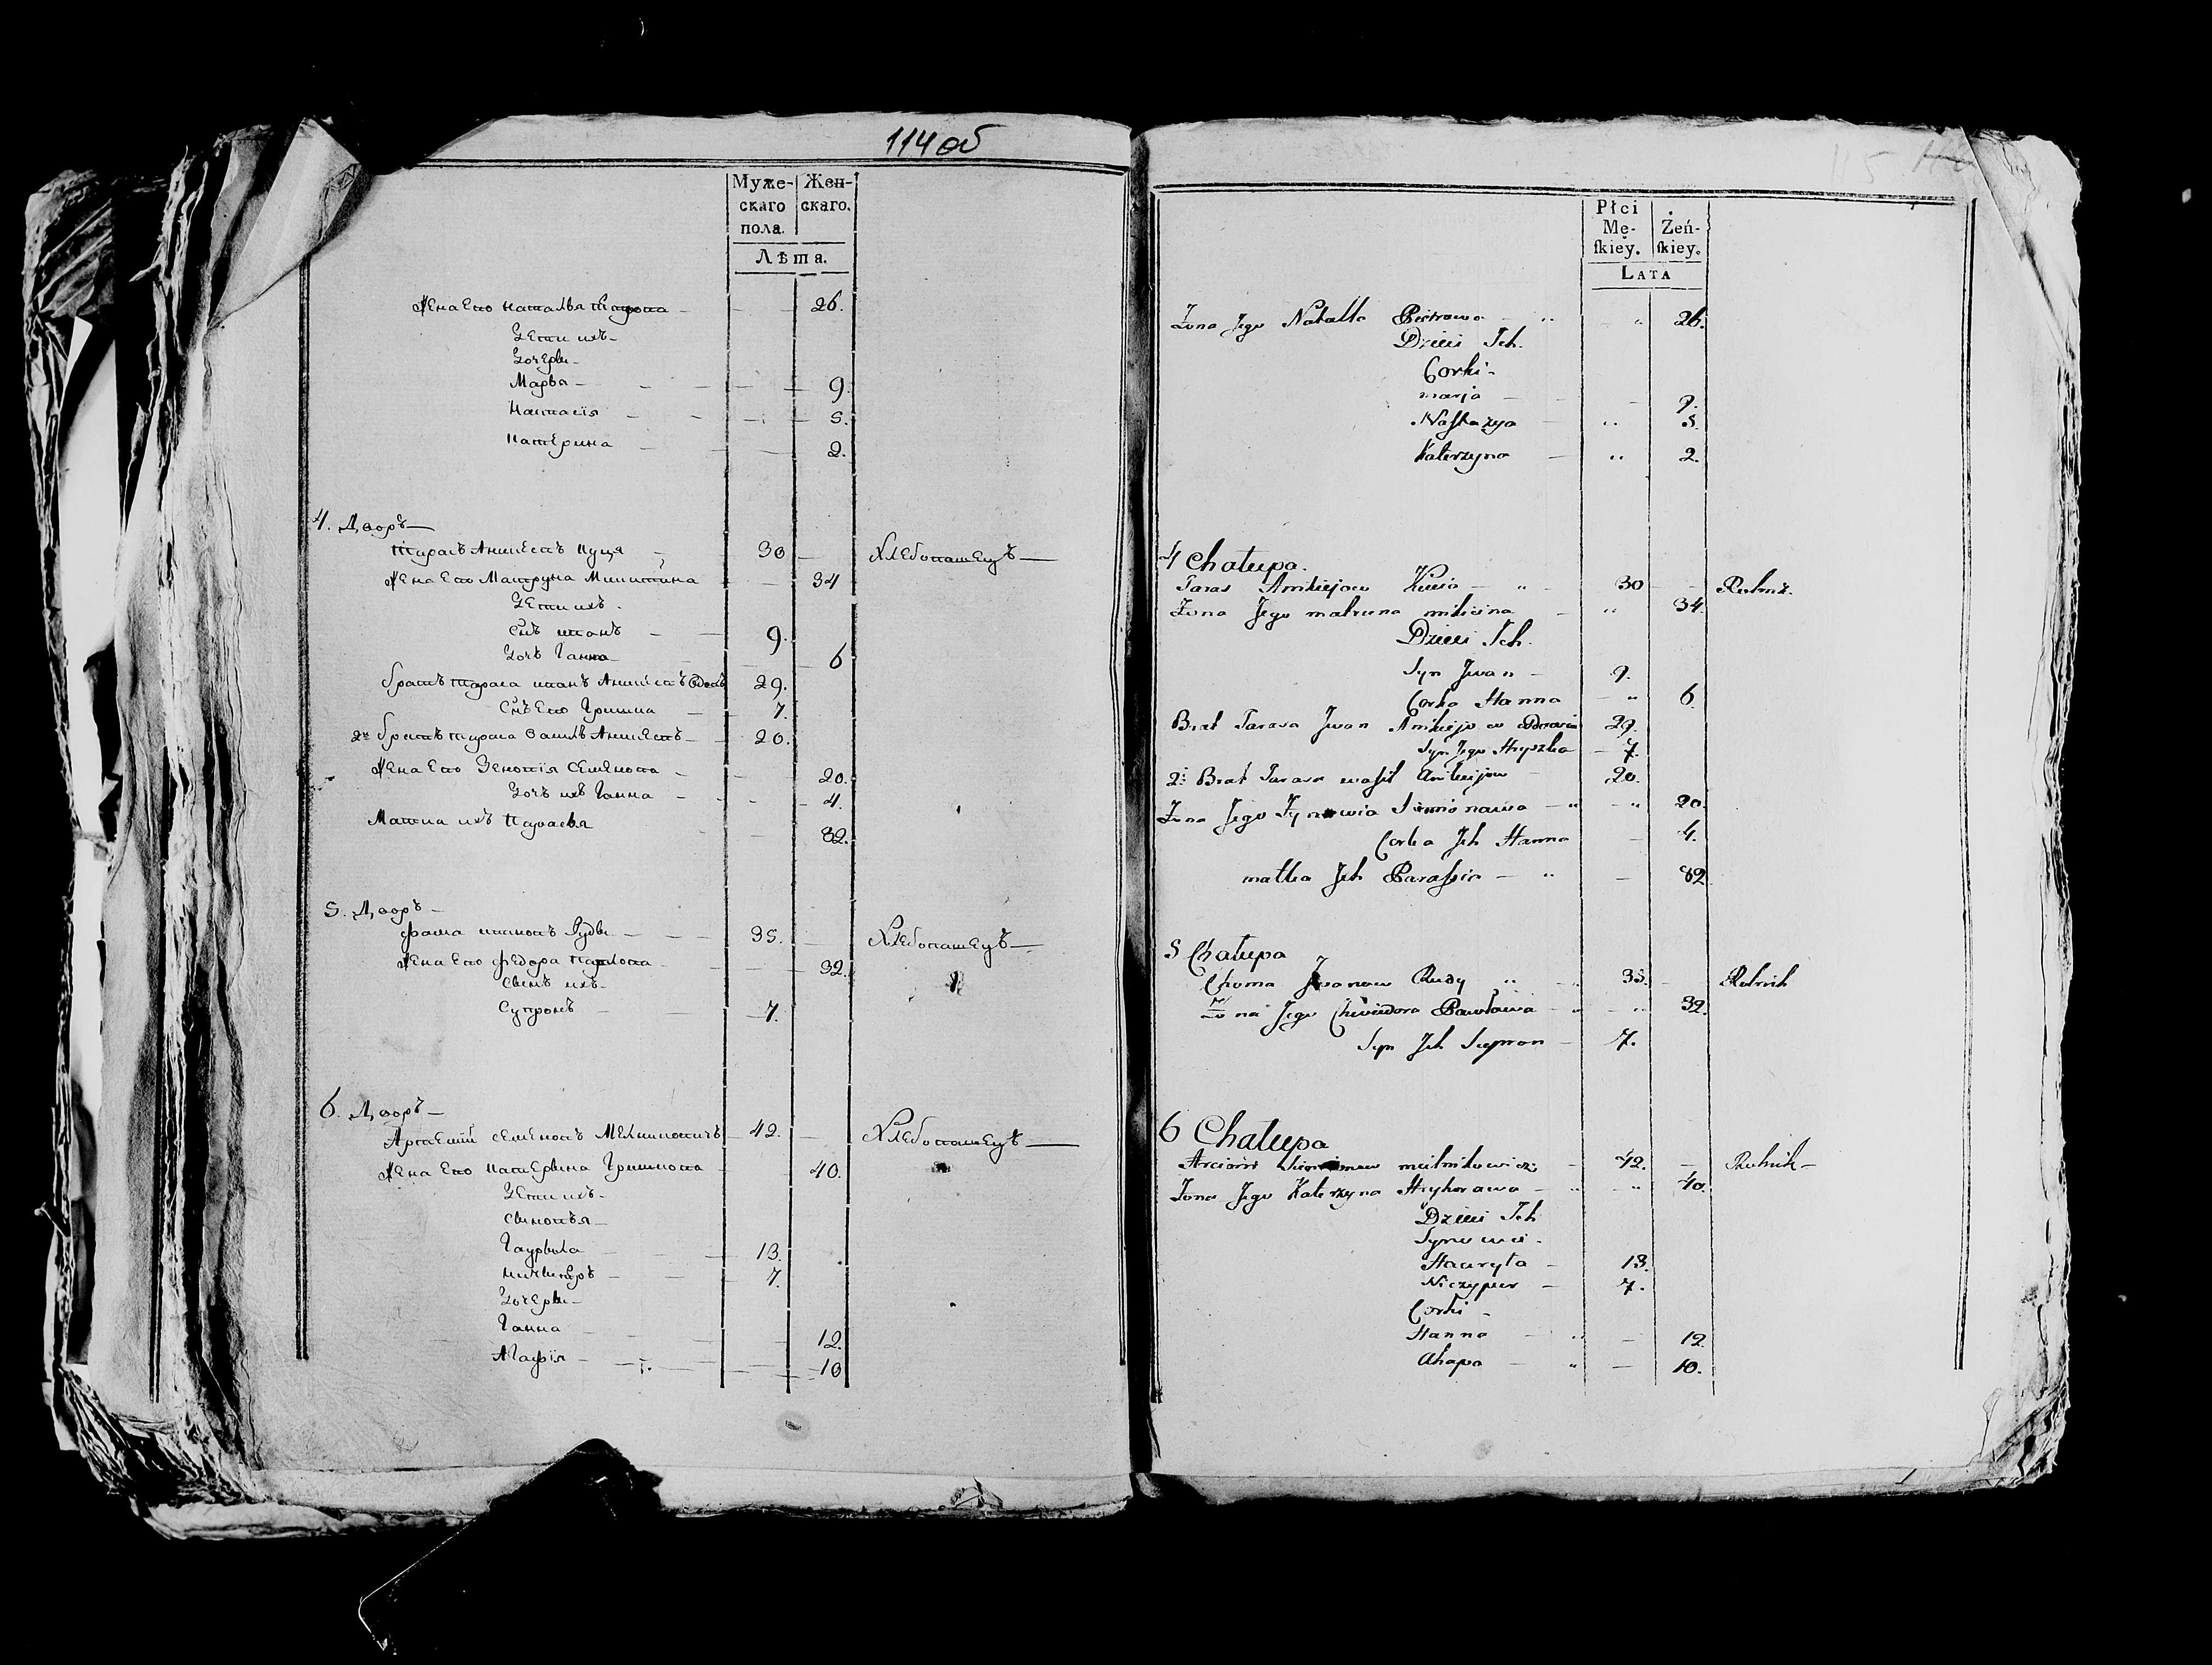 114 об
Муже- Жен-
скаго скаго.
пола.
Лѣта.
Жена Его Наталья Петрова 26.
Дети ихъ
Дочеры
Марья 9.
Настасія 5.
Катерина 2.
4. Дворъ
Тарасъ Аникеевъ 30 Хлебопашецъ
Жена Его Матруна Микитина 34
Дети ихъ
Снъ Иванъ 9.
Дочъ Ганна 6
братъ Тараса Иванъ Аникеевъ 29.
Снъ Его Гришка 7.
2й братъ Тараса Василь Аникеевъ 20.
Жена Его Зеновія Семенова 20.
Дочъ ихъ Ганна 4.
Матка ихъ Парасья 82.
5. Дворъ
Фома Ивановъ Руды 35. Хлебопашецъ
Жена Его Федора Павлова 32.
Сынъ ихъ
Супронъ 7.
6. Дворъ
Артемій Семеновъ Мелниковичъ 42. Хлебопашецъ
Жена Его Катерына Гришкова 40.
Дети ихъ
Сыновья
Гаврыла 13.
Ничыпуръ 7.
Дочеры
Ганна 12.
Агафія 10
115
Płci Żeń-
Mę- skiey.
skiey.
Lata
Żona Jego Natalla Pietrowa 26.
Dzieci Ich.
Corki
marja 9.
Nastazya 5.
Katerzyna 2.
4 Chałupa.
Taras Anikiejow 30 Rolnik.
Żona Jego matruna mikicina 34.
Dzieci Ich.
Syn Jwan 9.
Corka Hanna 6
Brat Tarasa Jwan Anikiejow 29.
Syn Jego Hryszka 7.
2i Brat Tarasa wasil Anikiejow 20.
Żona Jego Zynowia Siemionawa 20.
Corka Ich Hanna 4.
matka Ich Parassia 82
5 Chałupa
Choma Jwanow Rudy 35. Rolnik
Żona Jego Chwiedora Pawławа 32.
Syn Ich Supron 7.
6 Chałupa
Arciom Siemionow mielnikowicz 42. Rolnik
Żona Jego Katerzyna Hryhorawa 40.
Dzieci Ich
Synowie
Hauryła 13.
Niczypur 7.
Corki
Hanna 12
Ahapa 10.